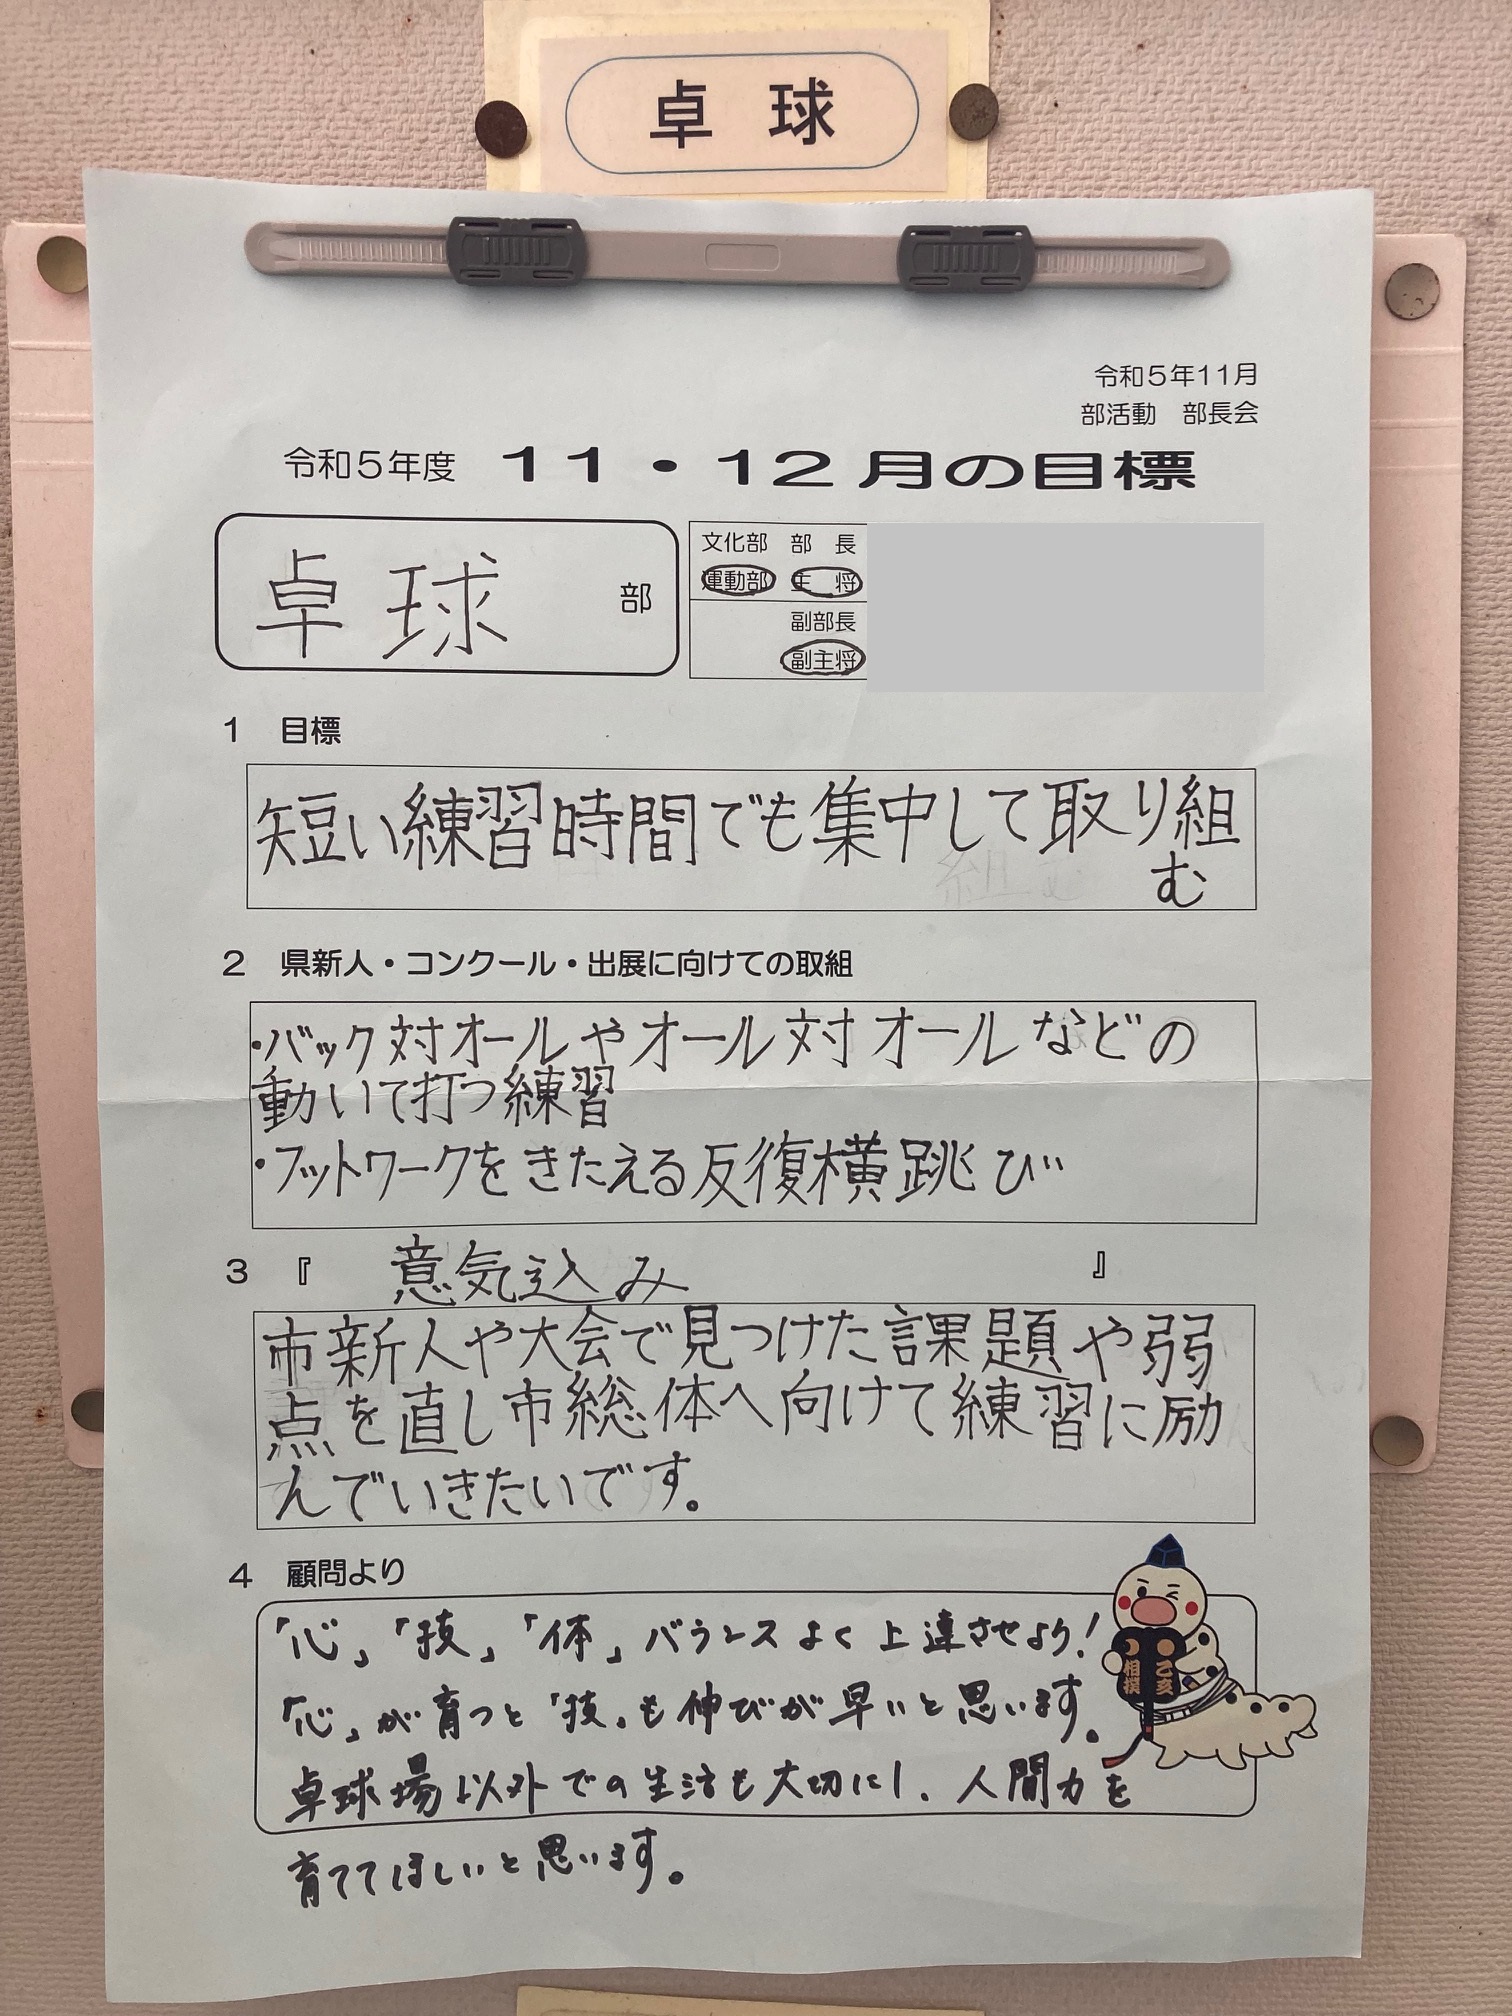 卓球
令和5年11月
部活動　部長会
令和5年度　11・12月の目標
卓球　部
文化部　部　長
運動部　主　将
副部長
副主将
1　目標
短い練習時間でも集中して取り組
む
2　県新人・コンクール・出展に向けての取組
・バック対オールやオール対オールなどの
動いて打つ練習
・フットワークをきたえる反復横跳び
3　『　意気込み　』
市新人や大会で見つけた課題や弱
点を直し市総体へ向けて練習に励
んでいきたいです。
4　顧問より
「心」「技」「体」バランスよく上達させよう！
「心」が育つと「技」も伸びが早いと思います。
卓球場以外での生活も大切にし、人間力を
育ててほしいと思います。
乙亥
相撲